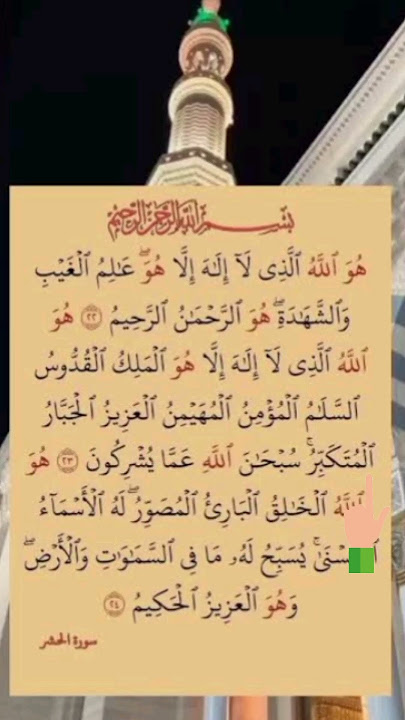 بِسْمِ ٱللَّهِ ٱلرَّحْمَٰنِ ٱلرَّحِيمِ
هُوَ ٱللَّهُ ٱلَّذِى لَآ إِلَٰهَ إِلَّا هُوَ ۖ عَٰلِمُ ٱلْغَيْبِ
وَٱلشَّهَٰدَةِ ۖ هُوَ ٱلرَّحْمَٰنُ ٱلرَّحِيمُ ٢٢ هُوَ
ٱللَّهُ ٱلَّذِى لَآ إِلَٰهَ إِلَّا هُوَ ٱلْمَلِكُ ٱلْقُدُّوسُ
ٱلسَّلَٰمُ ٱلْمُؤْمِنُ ٱلْمُهَيْمِنُ ٱلْعَزِيزُ ٱلْجَبَّارُ
ٱلْمُتَكَبِّرُ ۚ سُبْحَٰنَ ٱللَّهِ عَمَّا يُشْرِكُونَ ٢٣ هُوَ
ٱللَّهُ ٱلْخَٰلِقُ ٱلْبَارِئُ ٱلْمُصَوِّرُ ۖ لَهُ ٱلْأَسْمَآءُ
يُسَبِّحُ لَهُۥ مَا فِى ٱلسَّمَٰوَٰتِ وَٱلْأَرْضِ ۖ
وَهُوَ ٱلْعَزِيزُ ٱلْحَكِيمُ ٢٤
سورة الحشر